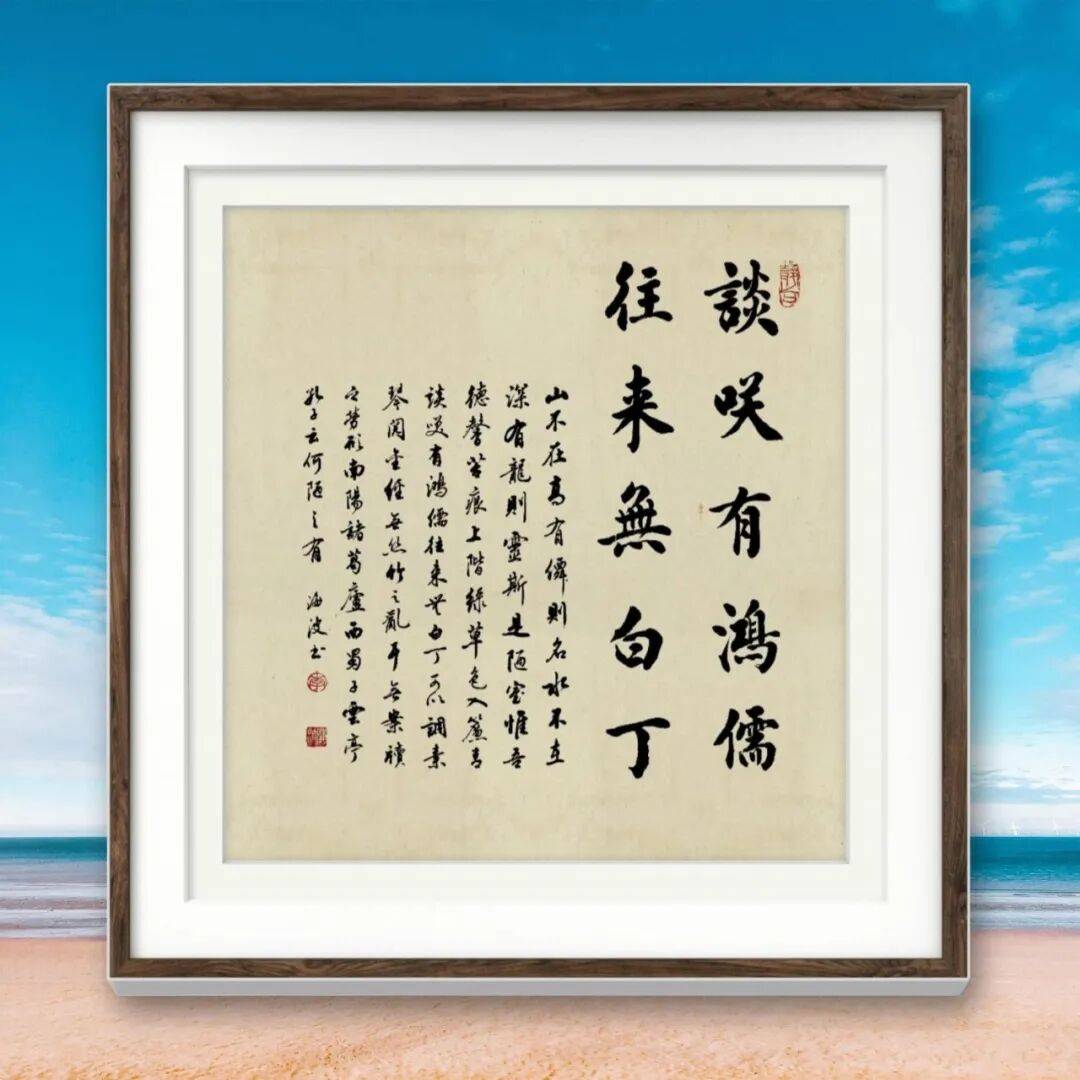 談咲有鴻儒
往来無白丁
山不在高有僊則名水不在
深有龍則靈斯是陋室惟吾
德馨苔痕上階緑草色入簾青
談咲有鴻儒往来無白丁可以調素
琴閲金經無絲竹之亂耳無案牘
之勞形南陽諸葛廬西蜀子雲亭
孔子云何陋之有 海波书